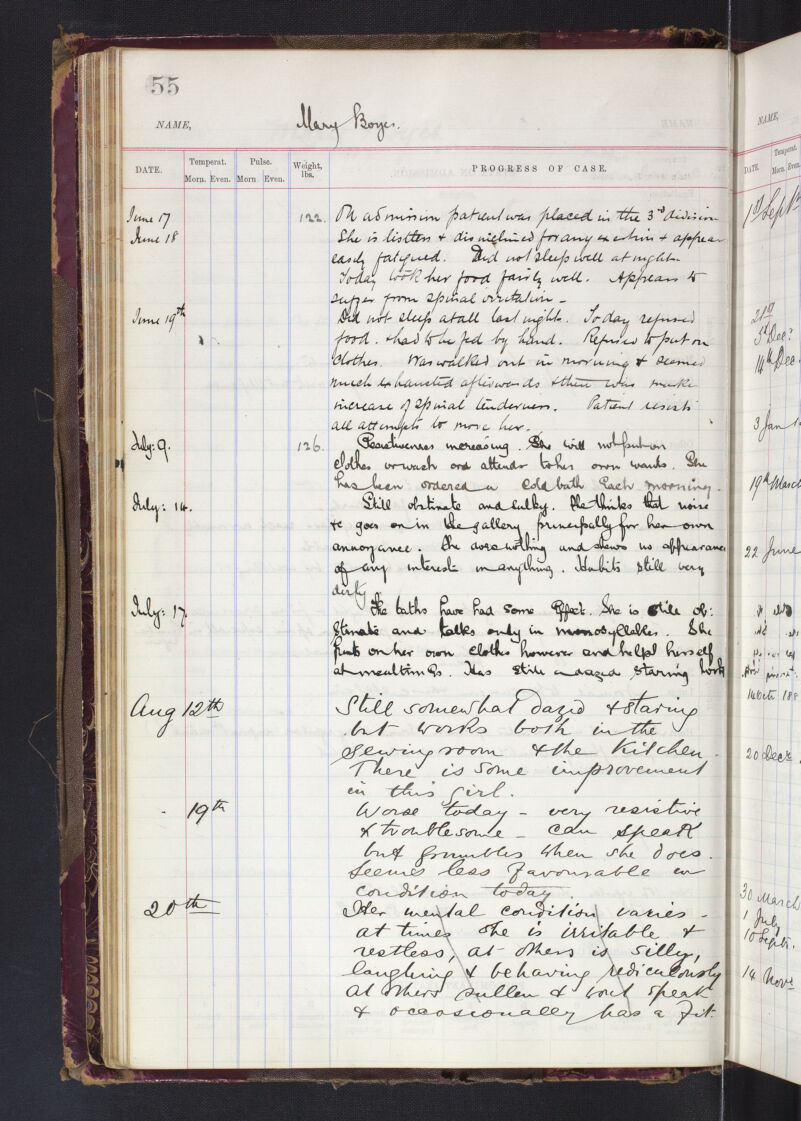 55
NAME, Mary Boyes.
DATE. Temperat. Morn. Even. Pulse. Morn Even. Weight, lbs. PROGRESS OF CASE.
June 17 122. On admission patient was placed in the 3rd division
June 18 She is listless & disinclined for any exertion & appears
easily fatigued. Did not sleep well at night.
Today took her food fairly well. Appears to
suffer from spinal irritation -
June 19th Did not sleep at all last night. Today refused
food. & had to be fed by hand. Refused to put on
clothes. Was walked out in morning & seemed
much exhausted afterwards & there was
increase of spinal tenderness. Patient resists
all attempts to move her.
July: 9. 126. Resistiveness increasing. She will not put on
clothes or wash or attend to her own wants. She
has been ordered a cold bath each morning.
July: 14. Still obstinate and sulky. She thinks that noise
&c goes on in the gallery principally for her own
annoyance. She does nothing and shews no appearance
of any interest in anything. Habits still very
dirty.
July: 17. The baths have had some effect. She is still ob:
stinate and talks only in monosyllables. She
puts on her own clothes however and helps herself
at mealtimes. Has still a dazed, staring look
Aug 12th Still somewhat dazed & staring
but works both in the
sewing room & the kitchen.
There is some improvement
in this girl.
19th Worse today - very resistive
& troublesome - can speak
but grumbles when she does.
Seems less favourable in
condition today.
20th Her mental condition varies -
at times she is irritable &
restless, at others is silly,
laughing & behaving rediculously
at others sullen & wont speak
& occasionally has a fit.
NAME,
DATE. Temperat. Morn. Even.
1st Sept
21st
5th Dec:
14th Dec
3 Jan
19th March
22 June
20 Decr
30 March
1 July
10 Septr.
14 Novr